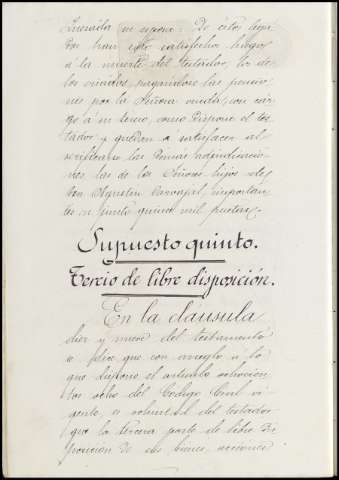 Quesada se supone: De estos lega
dos han sido satisfechos luego
á la muerte del testador, los de
los criados, pagándose las pensio
nes por la Señora viuda, con car
go á su tercio, como dispone el tes
tador y quedan á satisfacer al
las demás adjudicacio
nes las de los Señores hijos de
Don Agustin Carvajal, importan
tes en junto quince mil pesetas.
Supuesto quinto.
Tercio de libre disposición.
En la clausula
diez y nueve del testamento
se dice que con arreglo á lo
que dispone el articulo ochocien
tos ocho del Código Civil vi
gente, es voluntad del testador
que la tercera parte de libre dis
posición de sus bienes, acciones